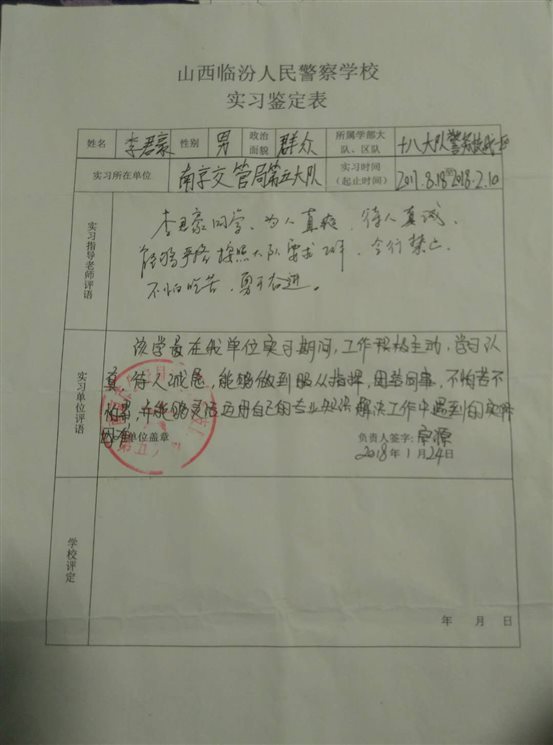 山西临汾人民警察学校
实习鉴定表
姓名 李君豪 性别 男 政治面貌 群众 所属学部大队、区队 十八大队警务
实习所在单位 南京交管局第五大队 实习时间(起止时间) 2017.8.18 2018.2.10
实习指导老师评语
李君豪同学,为人真 ,待人真诚,
能够严格按照大队要求 ,令行禁止,
不怕吃苦,勇于 进。
实习单位评语
该学员在我单位实习期间,工作积极主动,学习认
真,待人诚恳,能够做到服从指挥,团结同事,不怕苦不
怕累,并能够灵活运用自己的专业知识解决工作中遇到的实际
困难
单位盖章 负责人签字:
2018年1月24日
学校评定
年 月 日